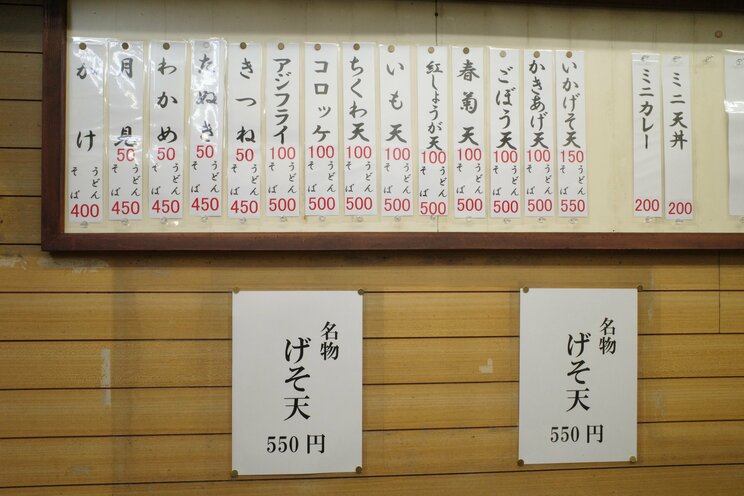 かけ
うどん
そば
400
月見
50
うどん
そば
450
わかめ
50
うどん
そば
450
たぬき
50
うどん
そば
450
きつね
50
うどん
そば
450
アジフライ
100
うどん
そば
500
コロッケ
100
うどん
そば
500
ちくわ天
100
うどん
そば
500
いも天
100
うどん
そば
500
紅しょうが天
100
うどん
そば
500
春菊天
100
うどん
そば
500
ごぼう天
100
うどん
そば
500
かきあげ天
100
うどん
そば
500
いかげそ天
150
うどん
そば
550
ミニカレー
200
ミニ天丼
200
名物
げそ天
550円
名物
げそ天
550円